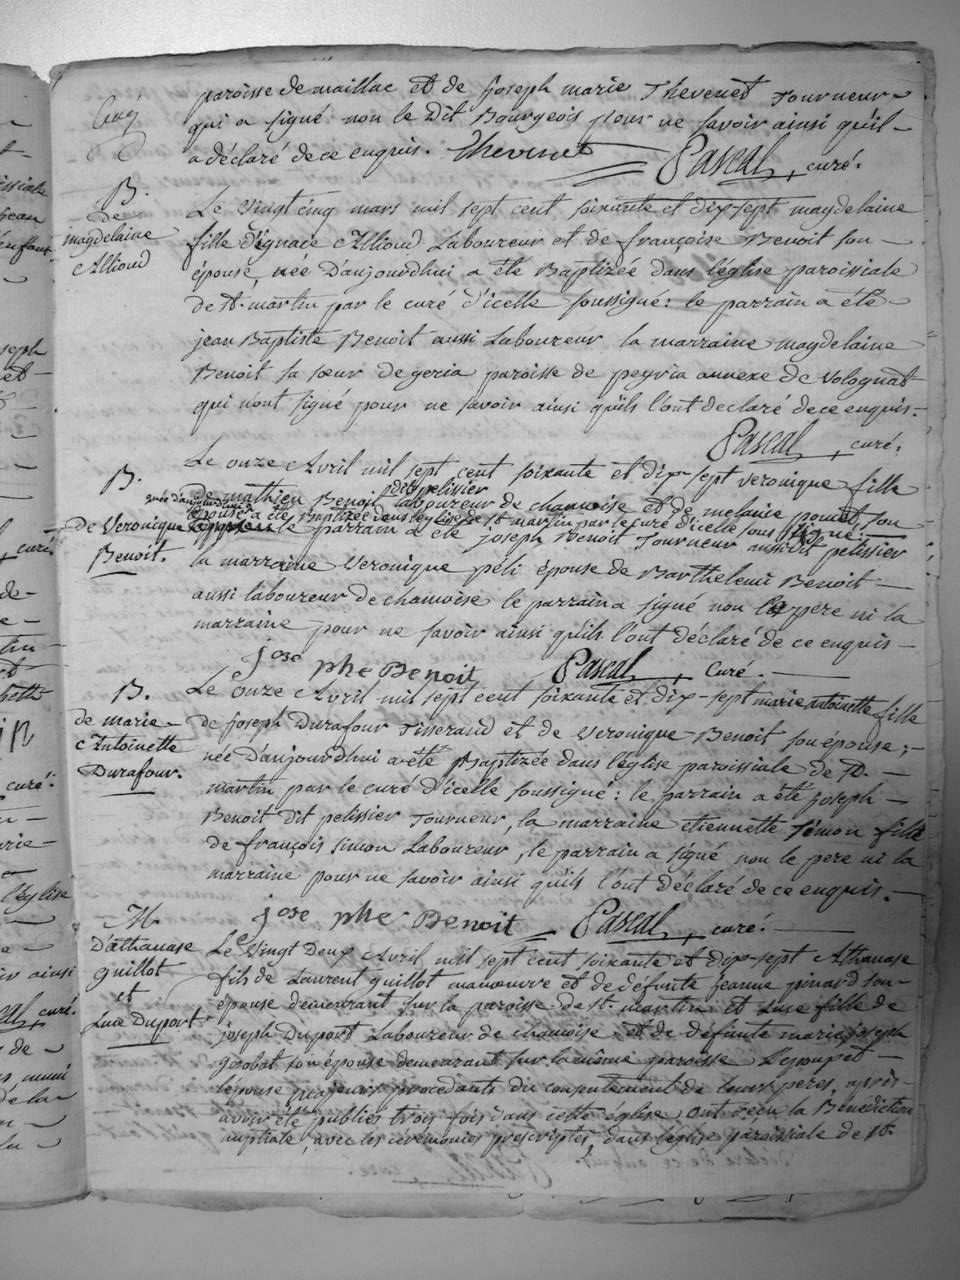 paroisse de maillac et de joseph marie Thevenet Tourneur
qui a signé non le Dit Bourgeois pour ne savoir ainsi qu'il
a déclaré de ce enquis. Thevenet Pascal, curé.
B.
de
magdelaine
Allioud
Le vingt cinq mars mil sept cent soixante et dix-sept magdelaine
fille d'ignace Allioud Laboureur et de françoise Benoit son
épouse, née D'aujourdhui a été Baptizée dans l'église paroissiale
de St. martin par le curé d'icelle soussigné: le parrain a été
jean Baptiste Benoit aussi Laboureur la marraine magdelaine
Benoit sa sœur de geria paroisse de peyria annexe de Volognat
qui n'ont signé pour ne savoir ainsi qu'ils l'ont declaré de ce enquis.
Pascal, curé.
B.
de Veronique
Benoit.
Le onze Avril mil sept cent soixante et dix-sept veronique fille
de mathieu Benoit dit pelissier laboureur de chamoise et de melanie son
née d'aujourdhui
épouse a été Baptizée dans l'église de St martin par le curé d'icelle sous signé:
le parrain a été joseph Benoit Tourneur aussi dit pelissier
la marraine Veronique péli épouse de Barthelemi Benoit
aussi laboureur de chamoise le parrain a signé non le pere ni la
marraine pour ne savoir ainsi qu'ils l'ont déclaré de ce enquis
jose phe Benoit Pascal, curé.
B.
de marie
Antoinette
Durafour.
Le onze Avril mil sept cent soixante et dix-sept marie antoinette fille
de joseph Durafour Tisserand et de Veronique Benoit son épouse;
née D'aujourdhui a été Baptizée dans l'église paroissiale de St.
martin par le curé d'icelle soussigné: le parrain a été joseph
Benoit dit pelissier Tourneur, la marraine etiennette simon fille
de françois simon Laboureur, le parrain a signé non le pere ni la
marraine pour ne savoir ainsi qu'ils l'ont déclaré de ce enquis.
jose phe Benoit Pascal, curé.
M.
D'athanase
guillot
et
Luce Duport
Le vingt Deux Avril mil sept cent soixante et dix-sept Athanase
fils de Laurent guillot manœuvre et de défunte jeanne pinard son
épouse demeurant sur la paroisse de St. martin et Luce fille de
joseph Duport Laboureur de chamoise et de défunte marie joseph
son épouse demeurant sur la même paroisse
l'épouse procédants du consentement de leurs peres, après
avoir été publiés trois fois dans cette église ont reçu la Bénédiction
nuptiale, avec les ceremonies prescriptes, dans l'église paroissiale de St.